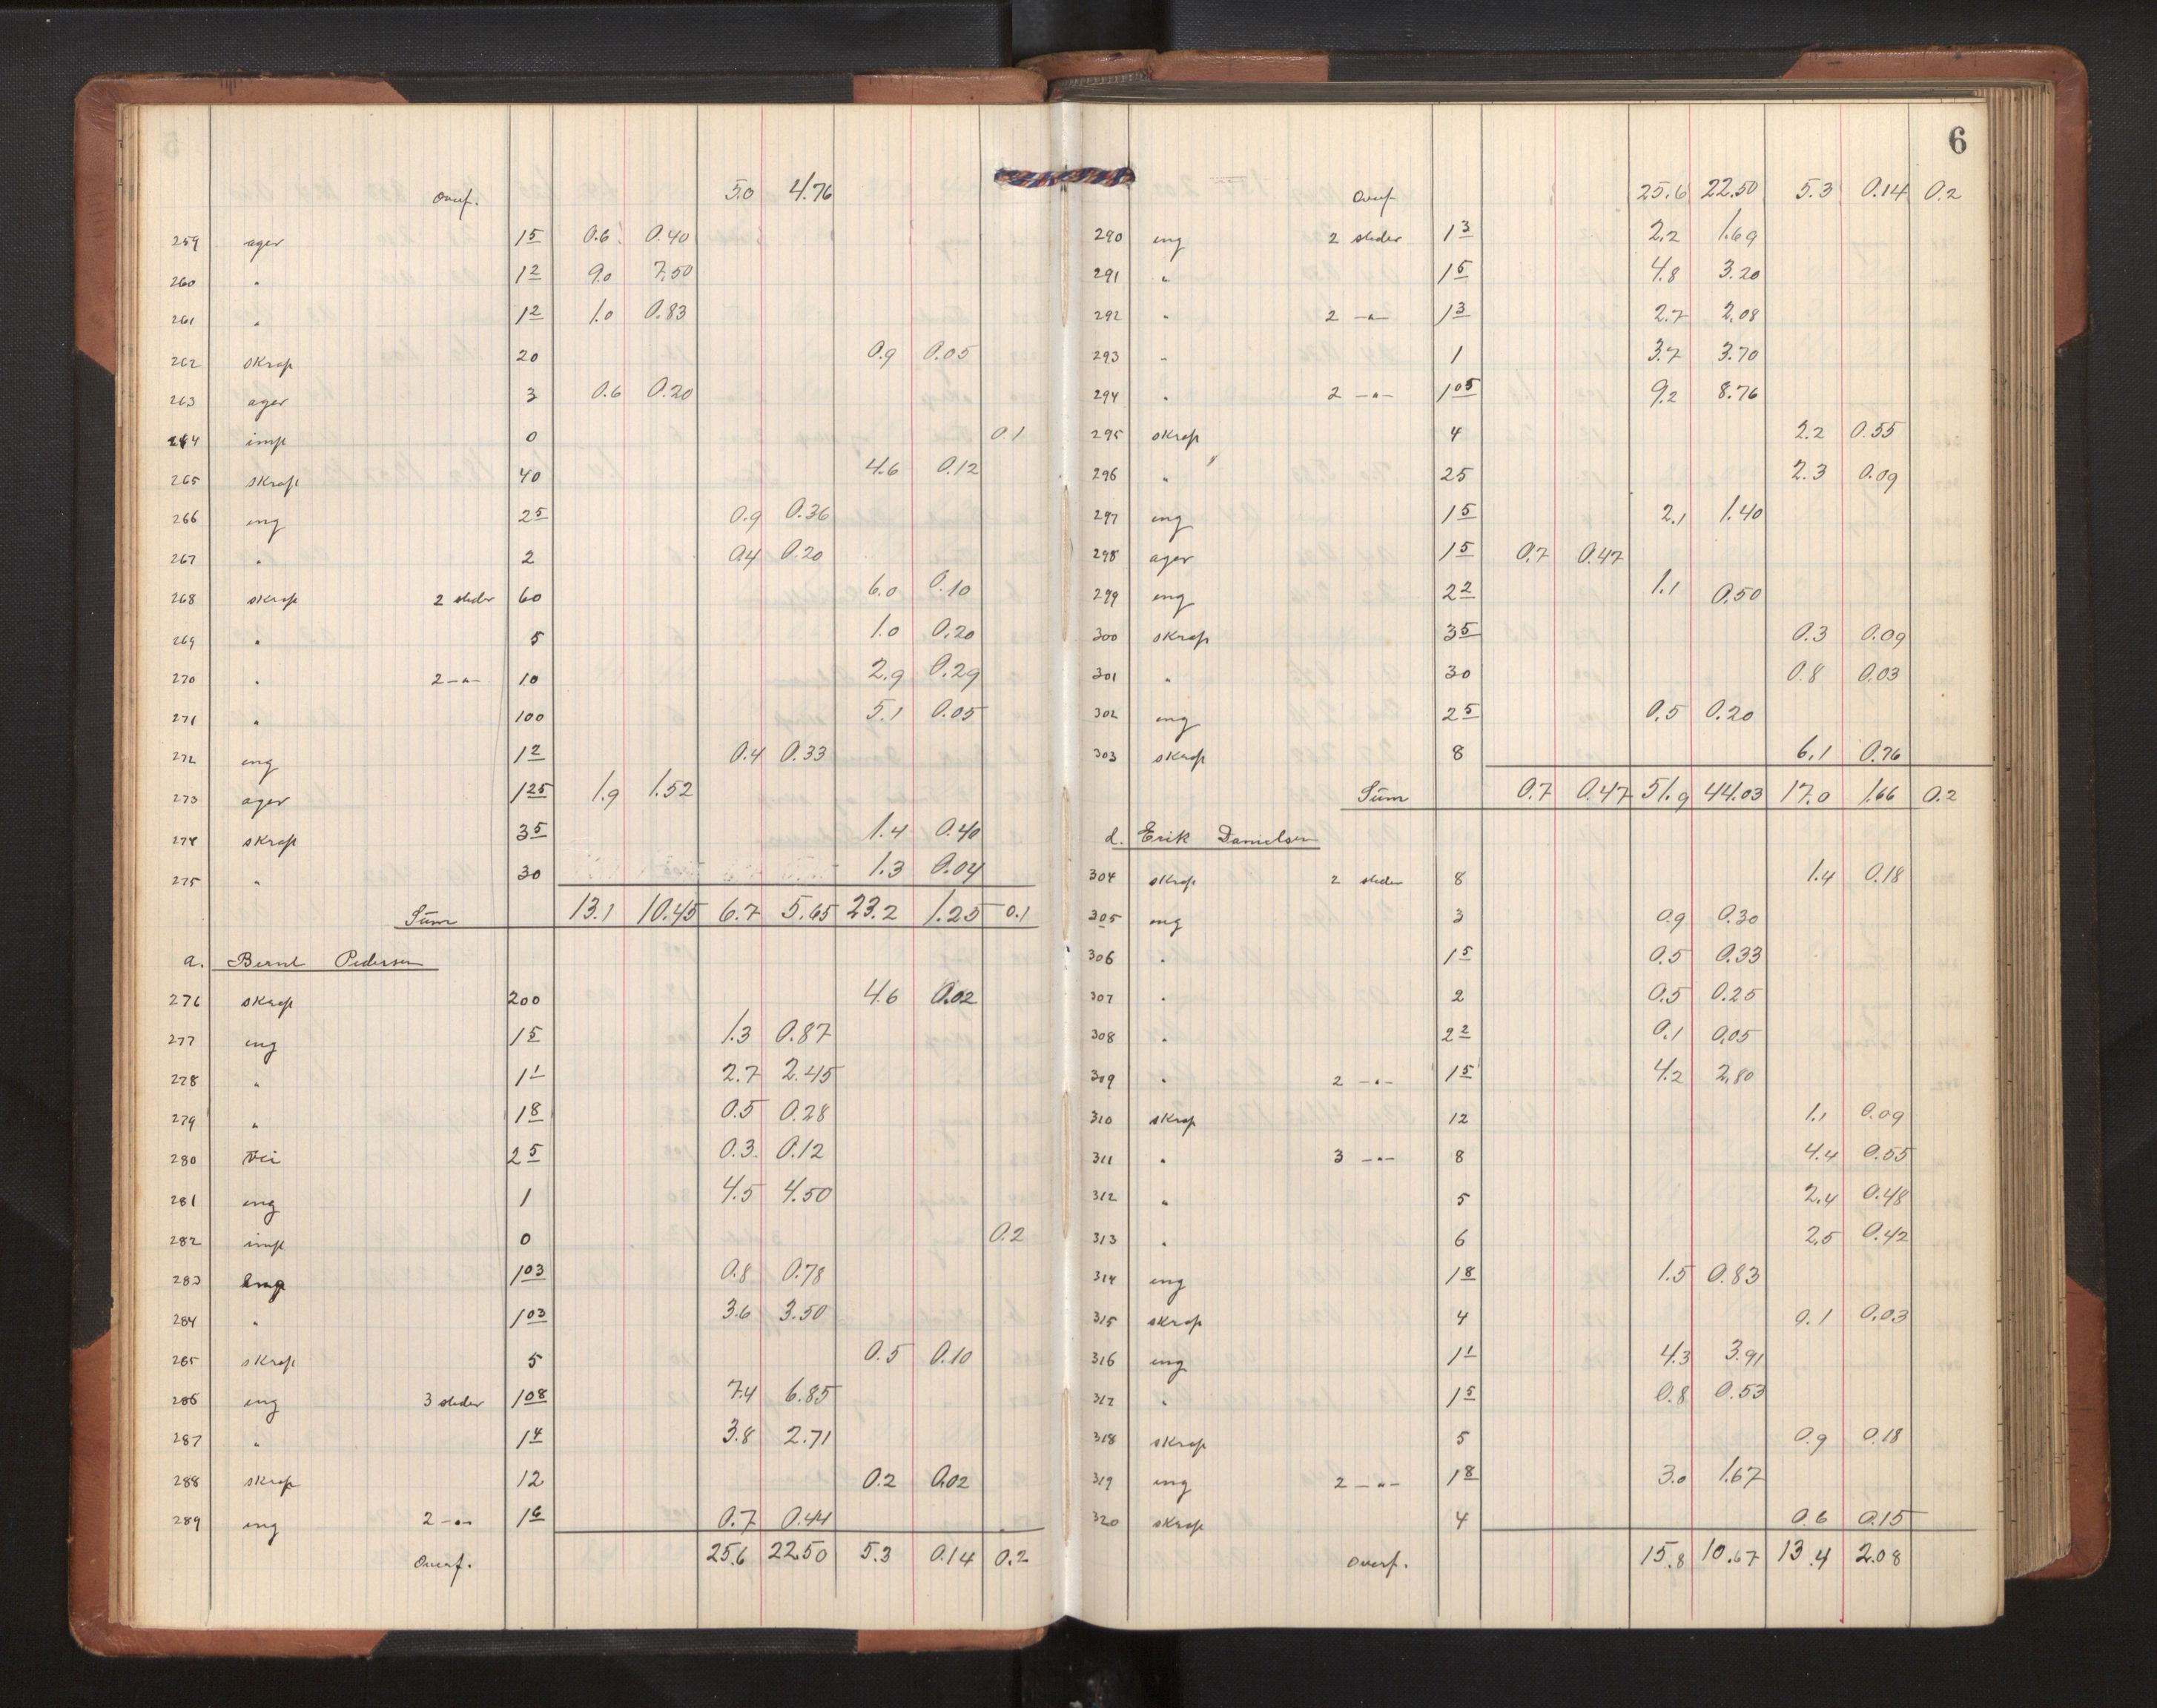 Overf. 5.0 4.76
259 ager 1 5 0.6 0.40
260 " 1 2 9.0 7.50
261 " 1 2 1.0 0.83
262 skrap 20 0.9 0.05
263 ager 3 0.6 0.20
264 imp 0 0.1
265 skrap 40 4.6 0.12
266 eng 2 5 0.9 0.36
267 " 2 0.4 0.20
268 skrap 2 steder 60 6.0 0.10
269 " 5 1.0 0.20
270 " 2 -"- 10 2.9 0.29
271 " 100 5.1 0.05
272 eng 1 2 0.4 0.33
273 ager 1 25 1.9 1.52
274 skrap 3 5 1.4 0.40
275 " 30 1.3 0.04
Sum 13.1 10.45 6.7 5.65 23.2 1.25 0.1
a. Bernt Pedersen
276 skrap 200 4.6 0.02
277 eng 1 5 1.3 0.87
278 " 1 1 2.7 2.45
279 " 1 8 0.5 0.28
280 Vei 2 5 0.3 0.12
281 eng 1 4.5 4.50
282 imp 0 0.2
283 eng 1 03 0.8 0.78
284 " 1 03 3.6 3.50
285 skrap 5 0.5 0.10
286 eng 3 steder 1 08 7.4 6.85
287 " 1 4 3.8 2.71
288 skrap 12 0.2 0.02
289 eng 2 -"- 1 6 0.7 0.44
Overf. 25.6 22.50 5.3 0.14 0.2
6
Overf 25.6 22.50 5.3 0.14 0.2
290 eng 2 steder 1 3 2.2 1.69
291 " 1 5 4.8 3.20
292 " 2 -"- 1 3 2.7 2.08
293 " 1 3.7 3.70
294 " 2 -"- 1 05 9.2 8.76
295 skrap 4 2.2 0.55
296 " 25 2.3 0.09
297 eng 1 5 2.1 1.40
298 ager 1 5 0.7 0.47
299 eng 2 2 1.1 0.50
300 skrap 3 5 0.3 0.09
301 " 30 0.8 0.03
302 eng 2 5 0.5 0.20
303 skrap 8 6.1 0.76
Sum 0.7 0.47 51.9 44.03 17.0 1.66 0.2
d. Erik Danielsen
304 skrap 2 steder 8 1.4 0.18
305 eng 3 0.9 0.30
306 " 1 5 0.5 0.33
307 " 2 0.5 0.25
308 " 2 2 0.1 0.05
309 " 2 -"- 1 5 4.2 2.80
310 skrap 12 1.1 0.09
311 " 3 -"- 8 4.4 0.55
312 " 5 2.4 0.48
313 " 6 2.5 0.42
314 eng 1 8 1.5 0.83
315 skrap 4 0.1 0.03
316 eng 1 1 4.3 3.91
317 " 1 5 0.8 0.53
318 skrap 5 0.9 0.18
319 eng 2 -"- 1 8 3.0 1.67
320 skrap 4 0.6 0.15
Overf. 15.8 10.67 13.4 2.08